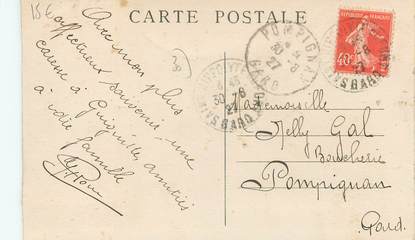 CARTE POSTALE
15 E
Avec mon plus
affectueux souvenir une
caresse à amitiés
à votre famille
POMPIGNAN
30 -8
27
GARD
REPUBLIQUE FRANÇAISE
40c
30 -8
27
GARD
Mademoiselle
Nelly Gal
Boucherie
Pompignan
Gard.